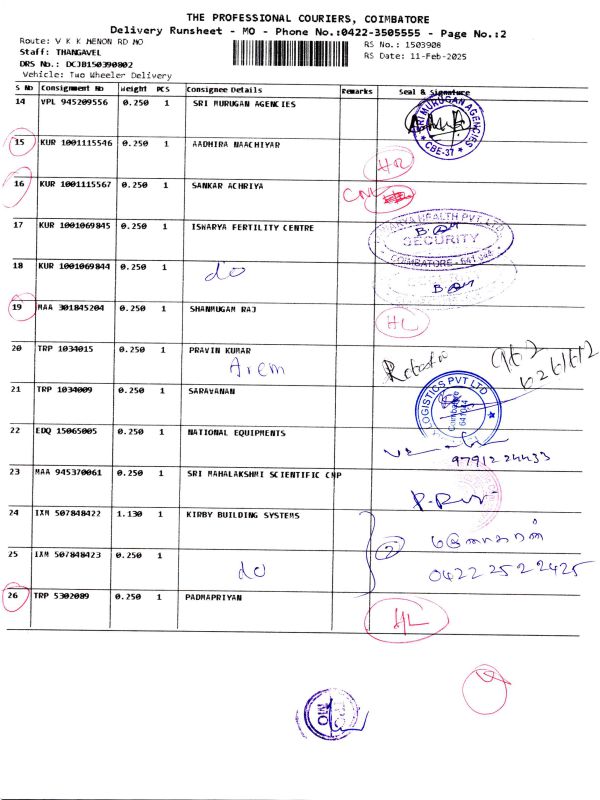 THE PROFESSIONAL COURIERS, COIMBATORE
Delivery Runsheet - MO - Phone No.:0422-3505555 - Page No.:2
Route: V K K MENON RD MO
RS No.: 1503908
Staff: THANGAVEL
RS Date: 11-Feb-2025
DRS No.: DCJB150390802
Vehicle: Two Wheeler Delivery
S No Consignment No Weight PCS Consignee Details Remarks Seal & Signature
14 VPL 945209556 0.250 1 SRI MURUGAN AGENCIES
SRI MURUGAN AGENCIES
* CBE-37 *
15 KUR 1001115546 0.250 1 AADHIRA NAACHIYAR
16 KUR 1001115567 0.250 1 SANKAR ACHRIYA
17 KUR 1001069845 0.250 1 ISWARYA FERTILITY CENTRE
HEALTH PVT. LTD
SECURITY
COIMBATORE - 641 044
18 KUR 1001069844 0.250 1 do
19 MAA 301845204 0.250 1 SHANMUGAM RAJ HL
20 TRP 1034015 0.250 1 PRAVIN KUMAR
21 TRP 1034009 0.250 1 SARAVANAN
LOGISTICS PVT LTD
Coimbatore
22 EDQ 15065005 0.250 1 NATIONAL EQUIPMENTS
9791224433
23 MAA 945370061 0.250 1 SRI MAHALAKSHMI SCIENTIFIC CMP
24 IXM 507848422 1.130 1 KIRBY BUILDING SYSTEMS
2
25 IXM 507848423 0.250 1 do
0422 2522425
26 TRP 5302089 0.250 1 PADMAPRIYAN HL
MO